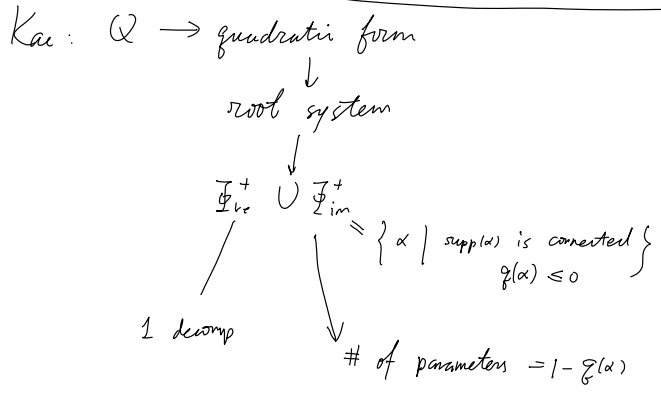 Kac: Q → quadratic form
↓
root system
↓
Φ⁺re ∪ Φ⁺im
= { α | supp(α) is connected
q(α) ≤ 0 }
1 decomp
# of parameters = 1 - q(α)